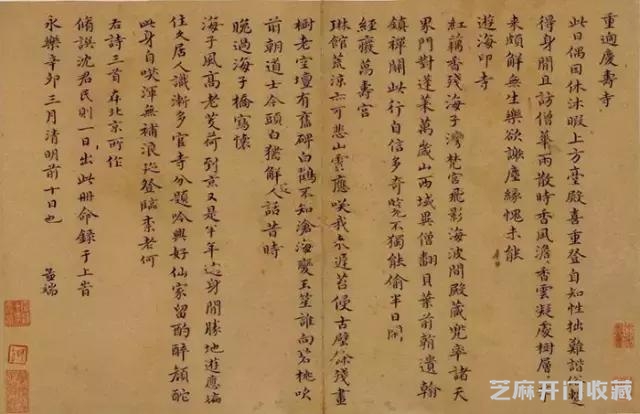 重過慶壽寺
此日偶因休沐暇上方臺殿喜重登自知性拙難諧俗
得身閒且訪僧華雨散時香風澹香雲凝處樹層
來頗解無生樂欲謝塵緣愧未能
遊海印寺
紅藕香殘海子灣梵宮飛影海波間殿藏兜率諸天
界門對蓬萊萬歲山西域異僧翻貝葉前朝遺翰
鎮禪關此行自信多奇覽不獨能偷半日閒
經廢萬壽宮
琳館荒涼亦可悲山雲應笑我來遲苔侵古壁餘殘畫
樹老空壇有舊碑白鶴不知滄海變玉笙誰向碧桃吹
前朝道士今頭白猶解人話昔時
近
晚過海子橋寫懷
海子風高老芰荷到京又是半年過身閒勝地遊應遍
住久居人識漸多官寺分題吟興好仙家留酌醉顏酡
此身自笑渾無補浪跡登臨柰老何
右詩三首在北京所作
脩譔沈君民則一日出此冊命錄于上昔
永樂辛卯三月清明前十日也
孟端
芝麻开门收藏